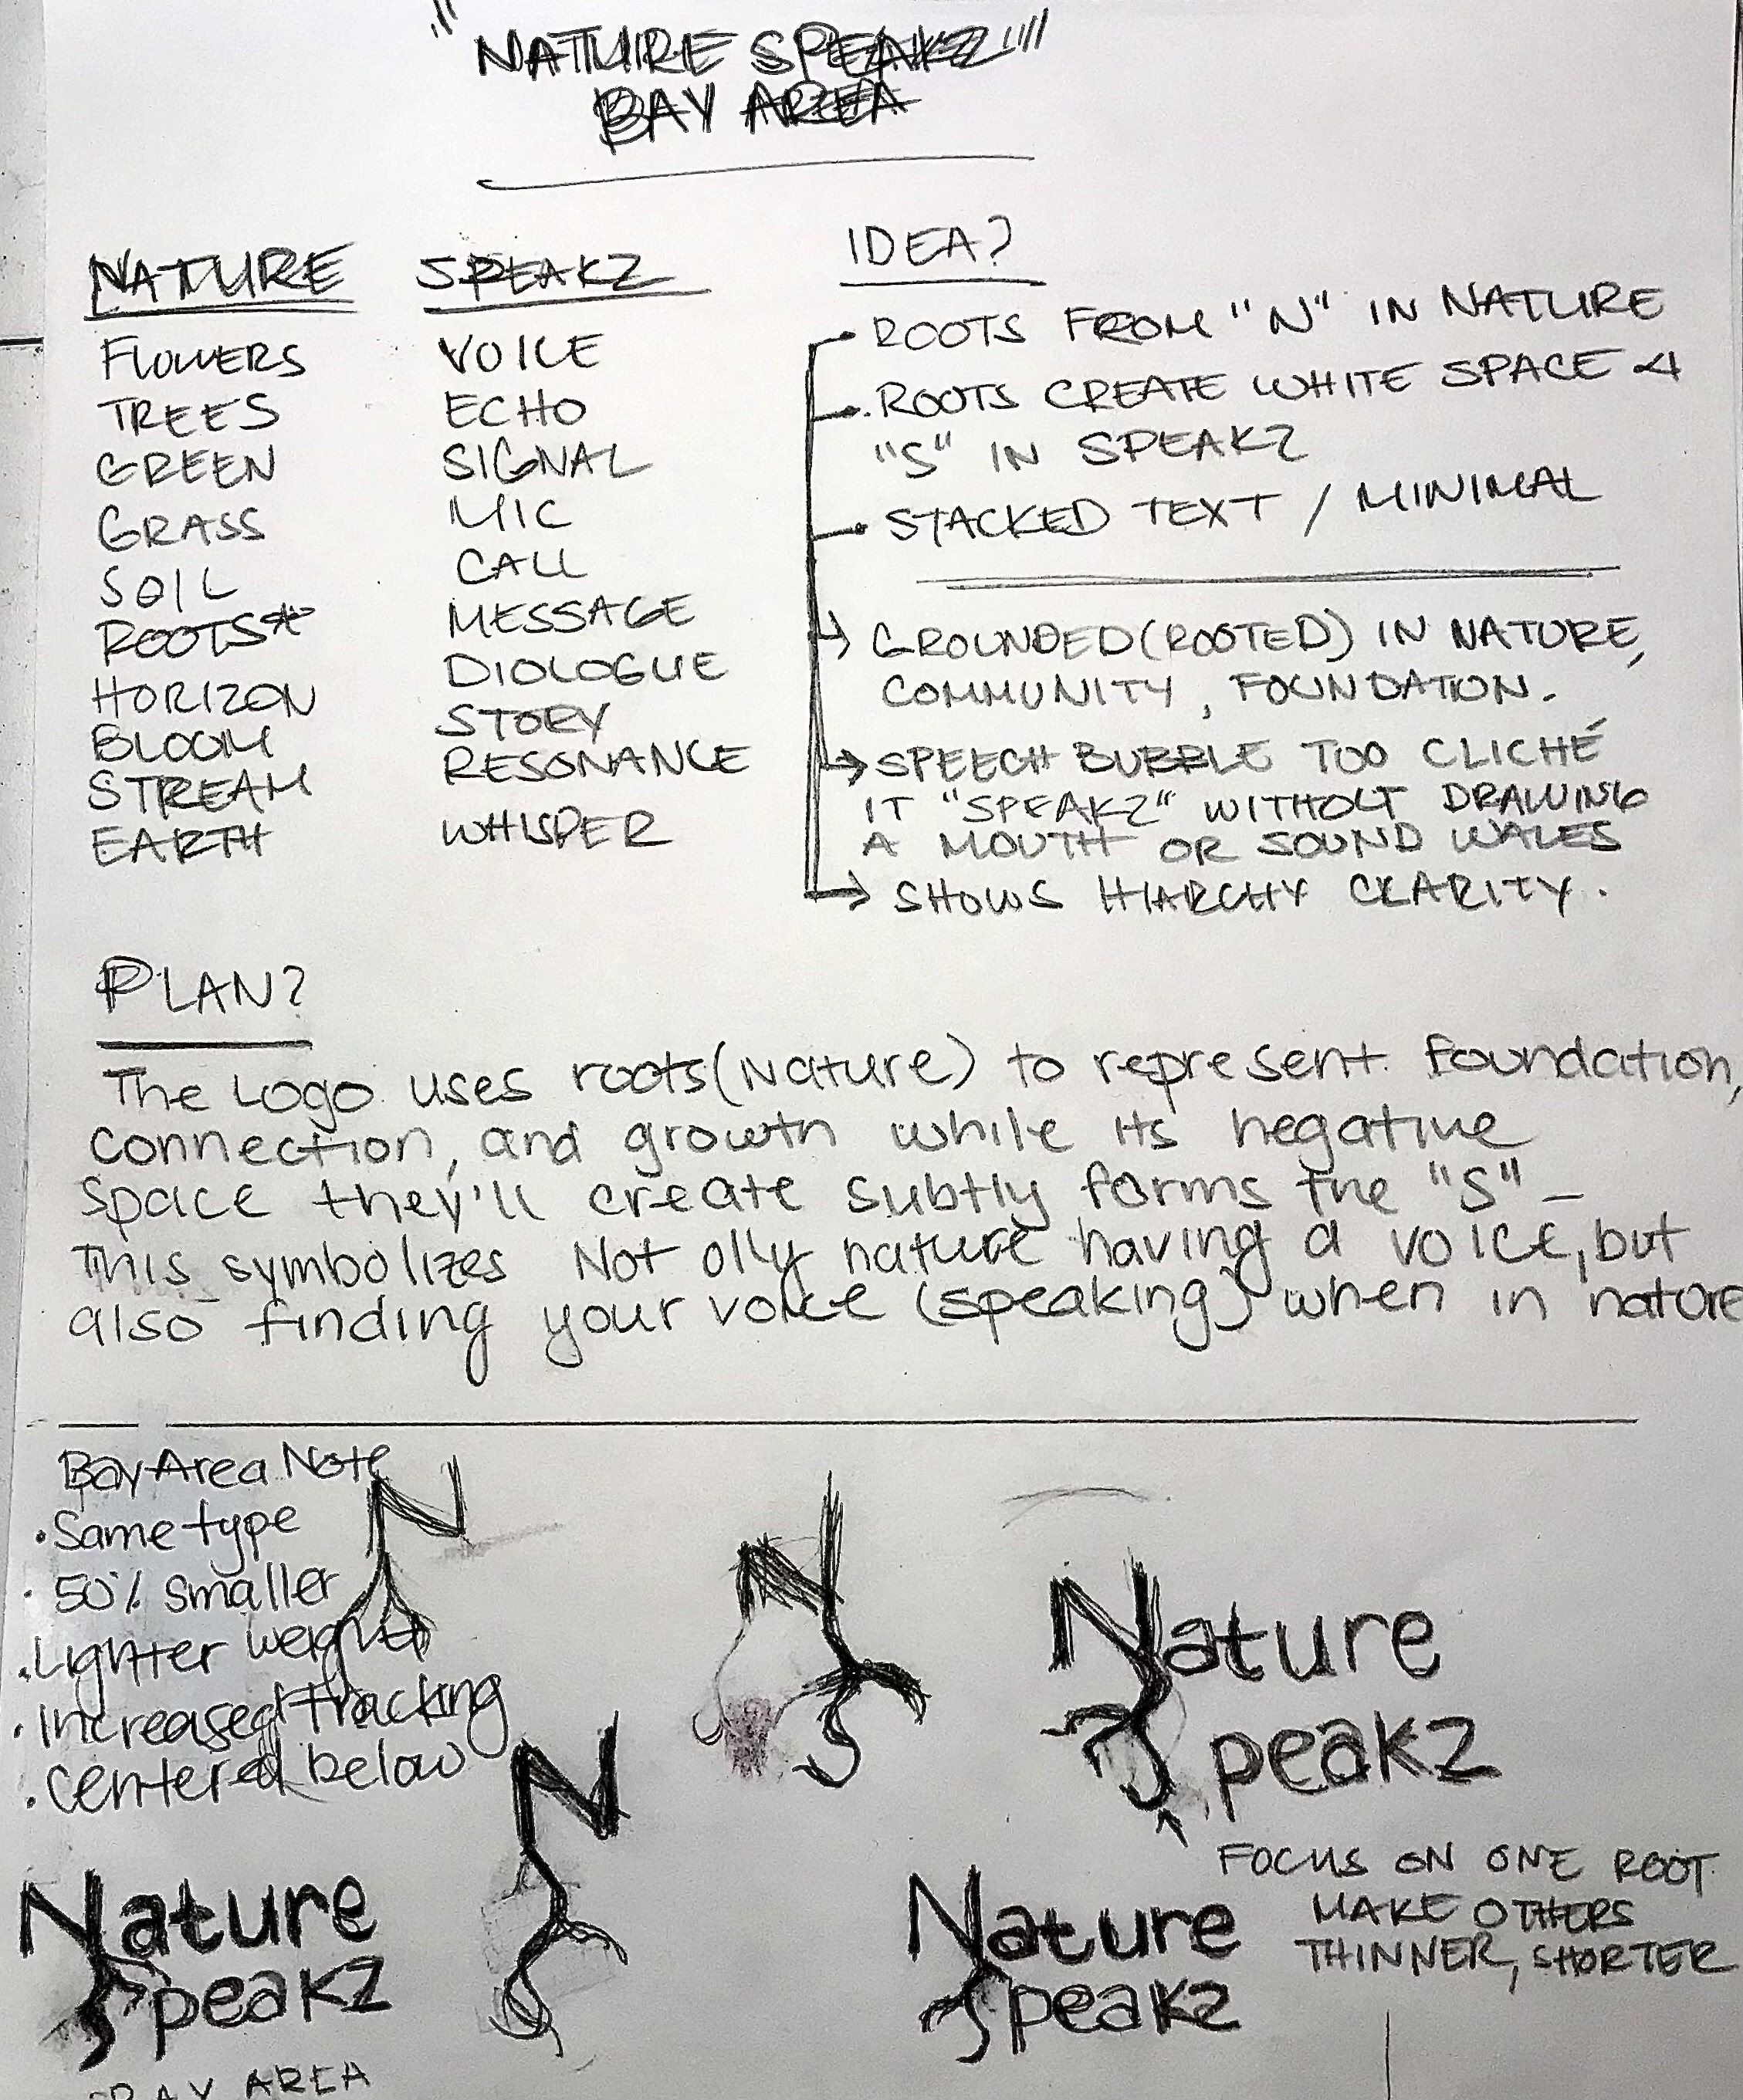 "NATURE SPEAKZ"
BAY AREA
NATURE
FLOWERS
TREES
GREEN
GRASS
SOIL
ROOTS*
HORIZON
BLOOM
STREAM
EARTH
SPEAKZ
VOICE
ECHO
SIGNAL
MIC
CALL
MESSAGE
DIOLOGUE
STORY
RESONANCE
WHISPER
IDEA?
• ROOTS FROM "N" IN NATURE
• ROOTS CREATE WHITE SPACE 4
"S" IN SPEAKZ
• STACKED TEXT / MINIMAL
→ GROUNDED (ROOTED) IN NATURE,
COMMUNITY, FOUNDATION.
→ SPEECH BUBBLE TOO CLICHÉ
IT "SPEAKZ" WITHOUT DRAWING
A MOUTH OR SOUND WALES
→ SHOWS HIARCHY CLARITY.
PLAN?
The Logo uses roots (Nature) to represent foundation,
connection, and growth while its negative
space they'll create subtly forms the "S" –
This symbolizes Not olly nature having a voice, but
also finding your voice (speaking) when in nature
Bay Area Note
• Same type
• 50% smaller
• Lighter weight
• Increased tracking
• centered below
N
N
N
Nature
Speakz
FOCUS ON ONE ROOT
MAKE OTHERS
THINNER, SHORTER
Nature
Speakz
BAY AREA
Nature
Speakz